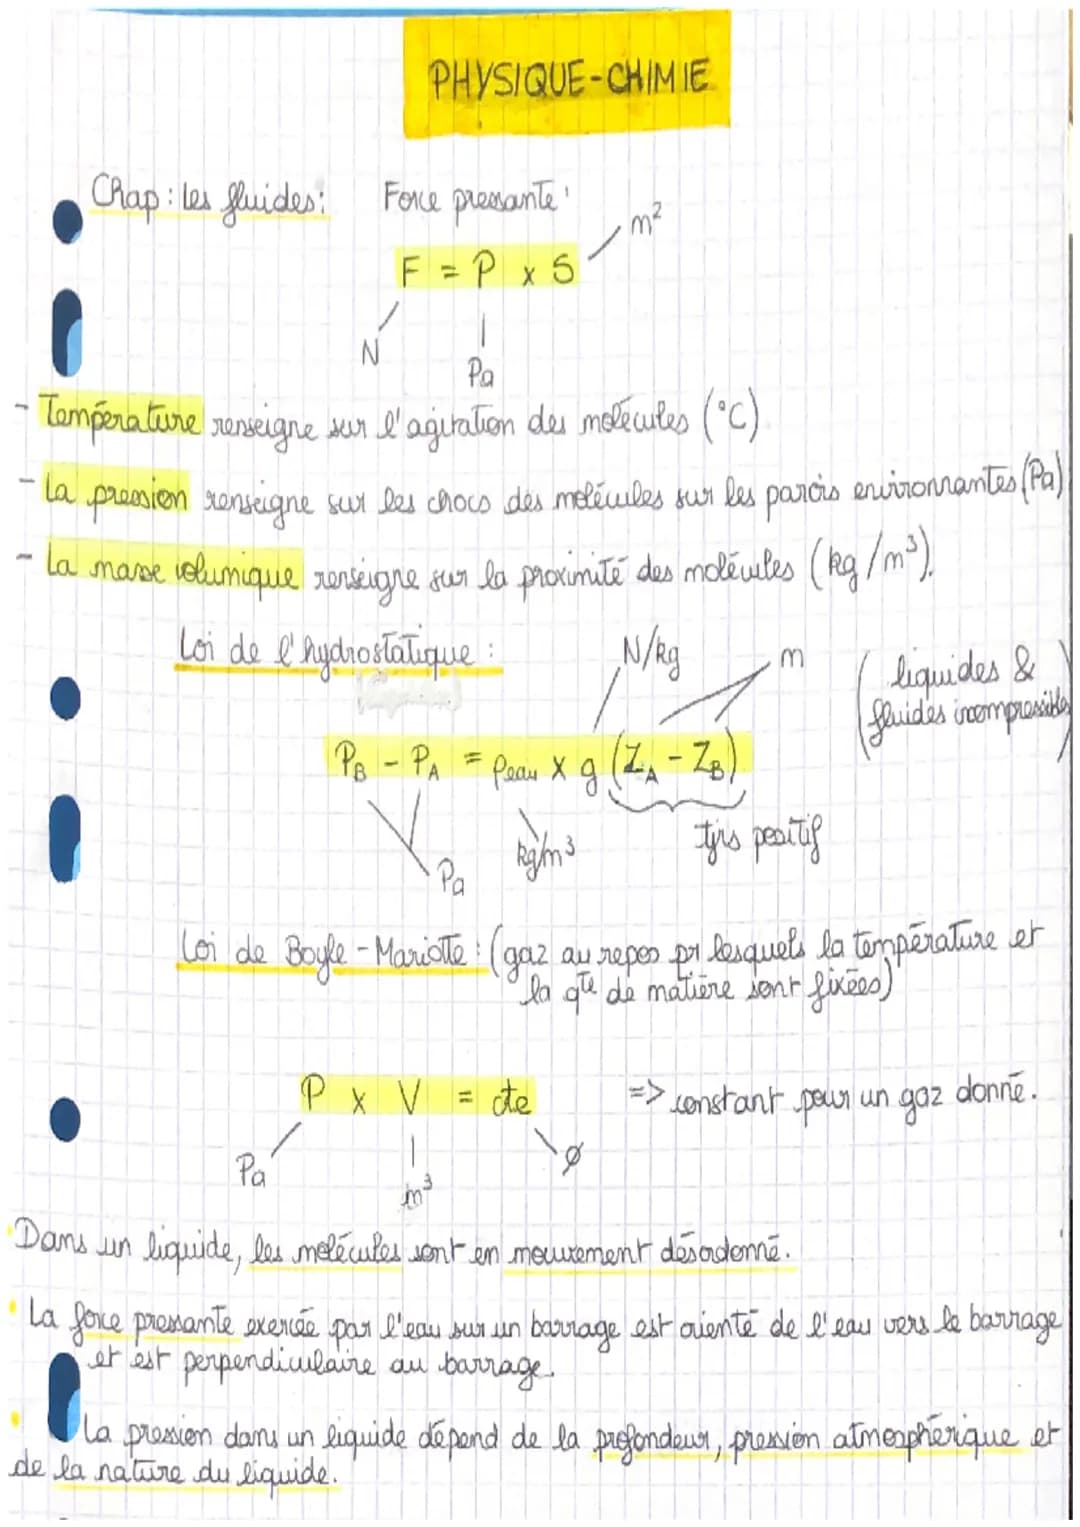 PHYSIQUE-CHIMIE
Chap : les fluides : Force pressante :
m²
F = P x S
N
Pa
- Température renseigne sur l'agitation des molécules (°C)
- La pression renseigne sur les chocs des molécules sur les parois environnantes (Pa)
- La masse volumique renseigne sur la proximité des molécules (kg/m³).
Loi de l'hydrostatique :
N/kg m (liquides &
fluides incompressibles)
PB - PA = ρeau x g (ZA - ZB)
kg/m³ tjrs positif
Pa
Loi de Boyle-Mariotte : (gaz au repos pr lesquels la température et
la qte de matière sont fixées)
P x V = cte => constant pour un gaz donné.
Pa m³ ø
Dans un liquide, les molécules sont en mouvement désordonné.
La force pressante exercée par l'eau sur un barrage est orienté de l'eau vers le barrage
et est perpendiculaire au barrage.
La pression dans un liquide dépend de la profondeur, pression atmosphérique et
de la nature du liquide.